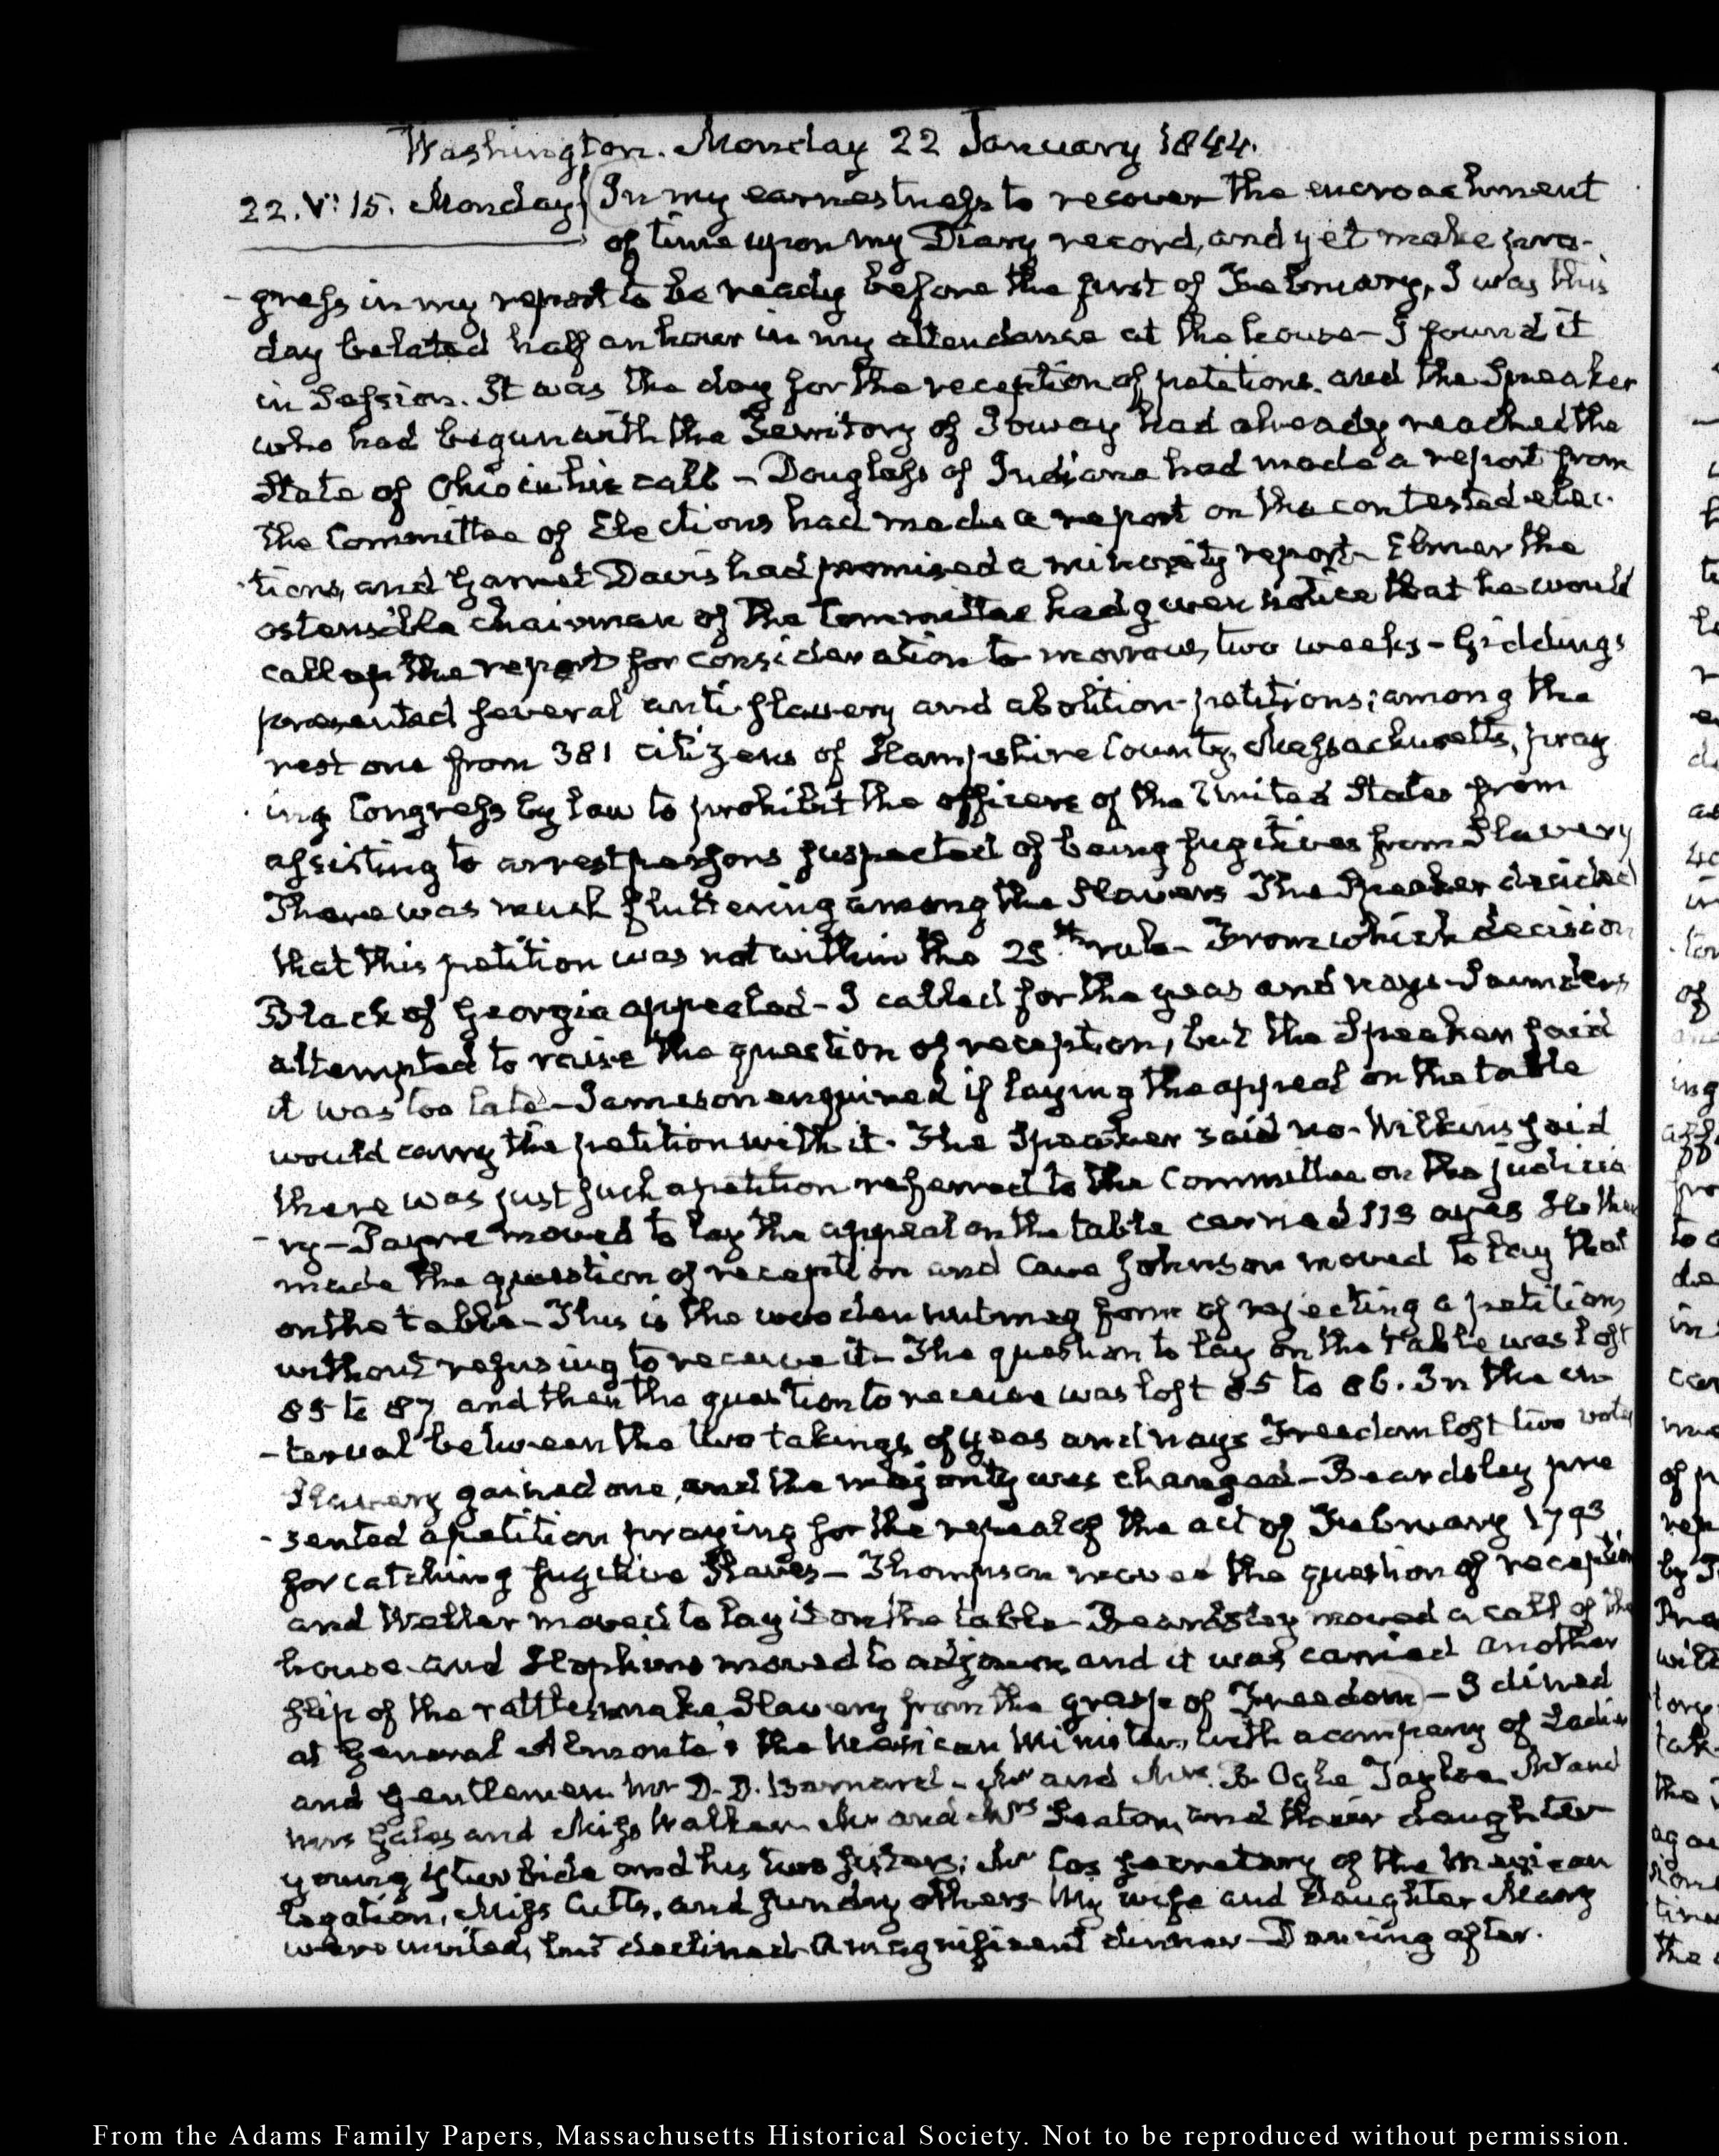 Washington. Monday 22 January 1844.
22. V: 15. Monday. In my earnestness to recover the encroachment
of time upon my Diary record, and yet make pro-
-gress in my report to be ready before the first of February, I was this
day belated half an hour in my attendance at the house - I found it
in Session. It was the day for the reception of petitions. and the Speaker
who had begun with the Territory of Ioway had already reached the
State of Ohio in his call - Douglass of Indiana had made a report from
the Committee of Elections had made a report on the contested elec-
-tions, and Garret Davis had promised a minority report - Elmer the
ostensible chairman of the Committee had given notice that he would
call up the report for consideration to morrow two weeks - Giddings
presented several anti-slavery and abolition-petitions; among the
rest one from 381 citizens of Hampshire County, Massachusetts, pray
-ing Congress by law to prohibit the officers of the United States from
assisting to arrest persons suspected of being fugitives from Slavery
There was much fluttering among the Slavers The Speaker decided
that this petition was not within the 25th rule - From which decision
Black of Georgia appealed - I called for the yeas and nays - Saunders
attempted to raise the question of reception, but the Speaker said
it was too late - Jameson enquired if laying the appeal on the table
would carry the petition with it. The Speaker said no - Wilkins said
there was just such a petition referred to the Committee on the judicia
-ry - Payne moved to lay the appeal on the table carried ayes He then
made the question of reception and Cave Johnson moved to lay that
on the table - This is the wooden nutmeg form of rejecting a petition
without refusing to receive it - The question to lay on the table was lost
85 to 87 and then the question to receive was lost 85 to 86. In the in
-terval between the two takings of yeas and nays Freedom lost two votes
Slavery gained one, and the majority was changed - Beardsley pre
-sented a petition praying for the repeal of the act of February 1793
for catching fugitive Slaves - Thompson moved the question of reception
and Weller moved to lay it on the table - Beardsley moved a call of the
house and Hopkins moved to adjourn and it was carried another
slip of the rattlesnake Slavery from the grasp of Freedom - I dined
at General Almonte's the Mexican Minister, with a company of Ladies
and Gentlemen. Mr D. D. Barnard - Mr and Mrs B. Ogle Tayloe Mr and
Mrs Gales and Miss Walker Mr and Mrs Seaton, and their daughter
young Yturbide and his two sisters; Mr Cos secretary of the Mexican
legation, Miss Cutts, and sundry others My wife and Daughter Mary
were invited, but declined A magnificent dinner - Dancing after.
From the Adams Family Papers, Massachusetts Historical Society. Not to be reproduced without permission.